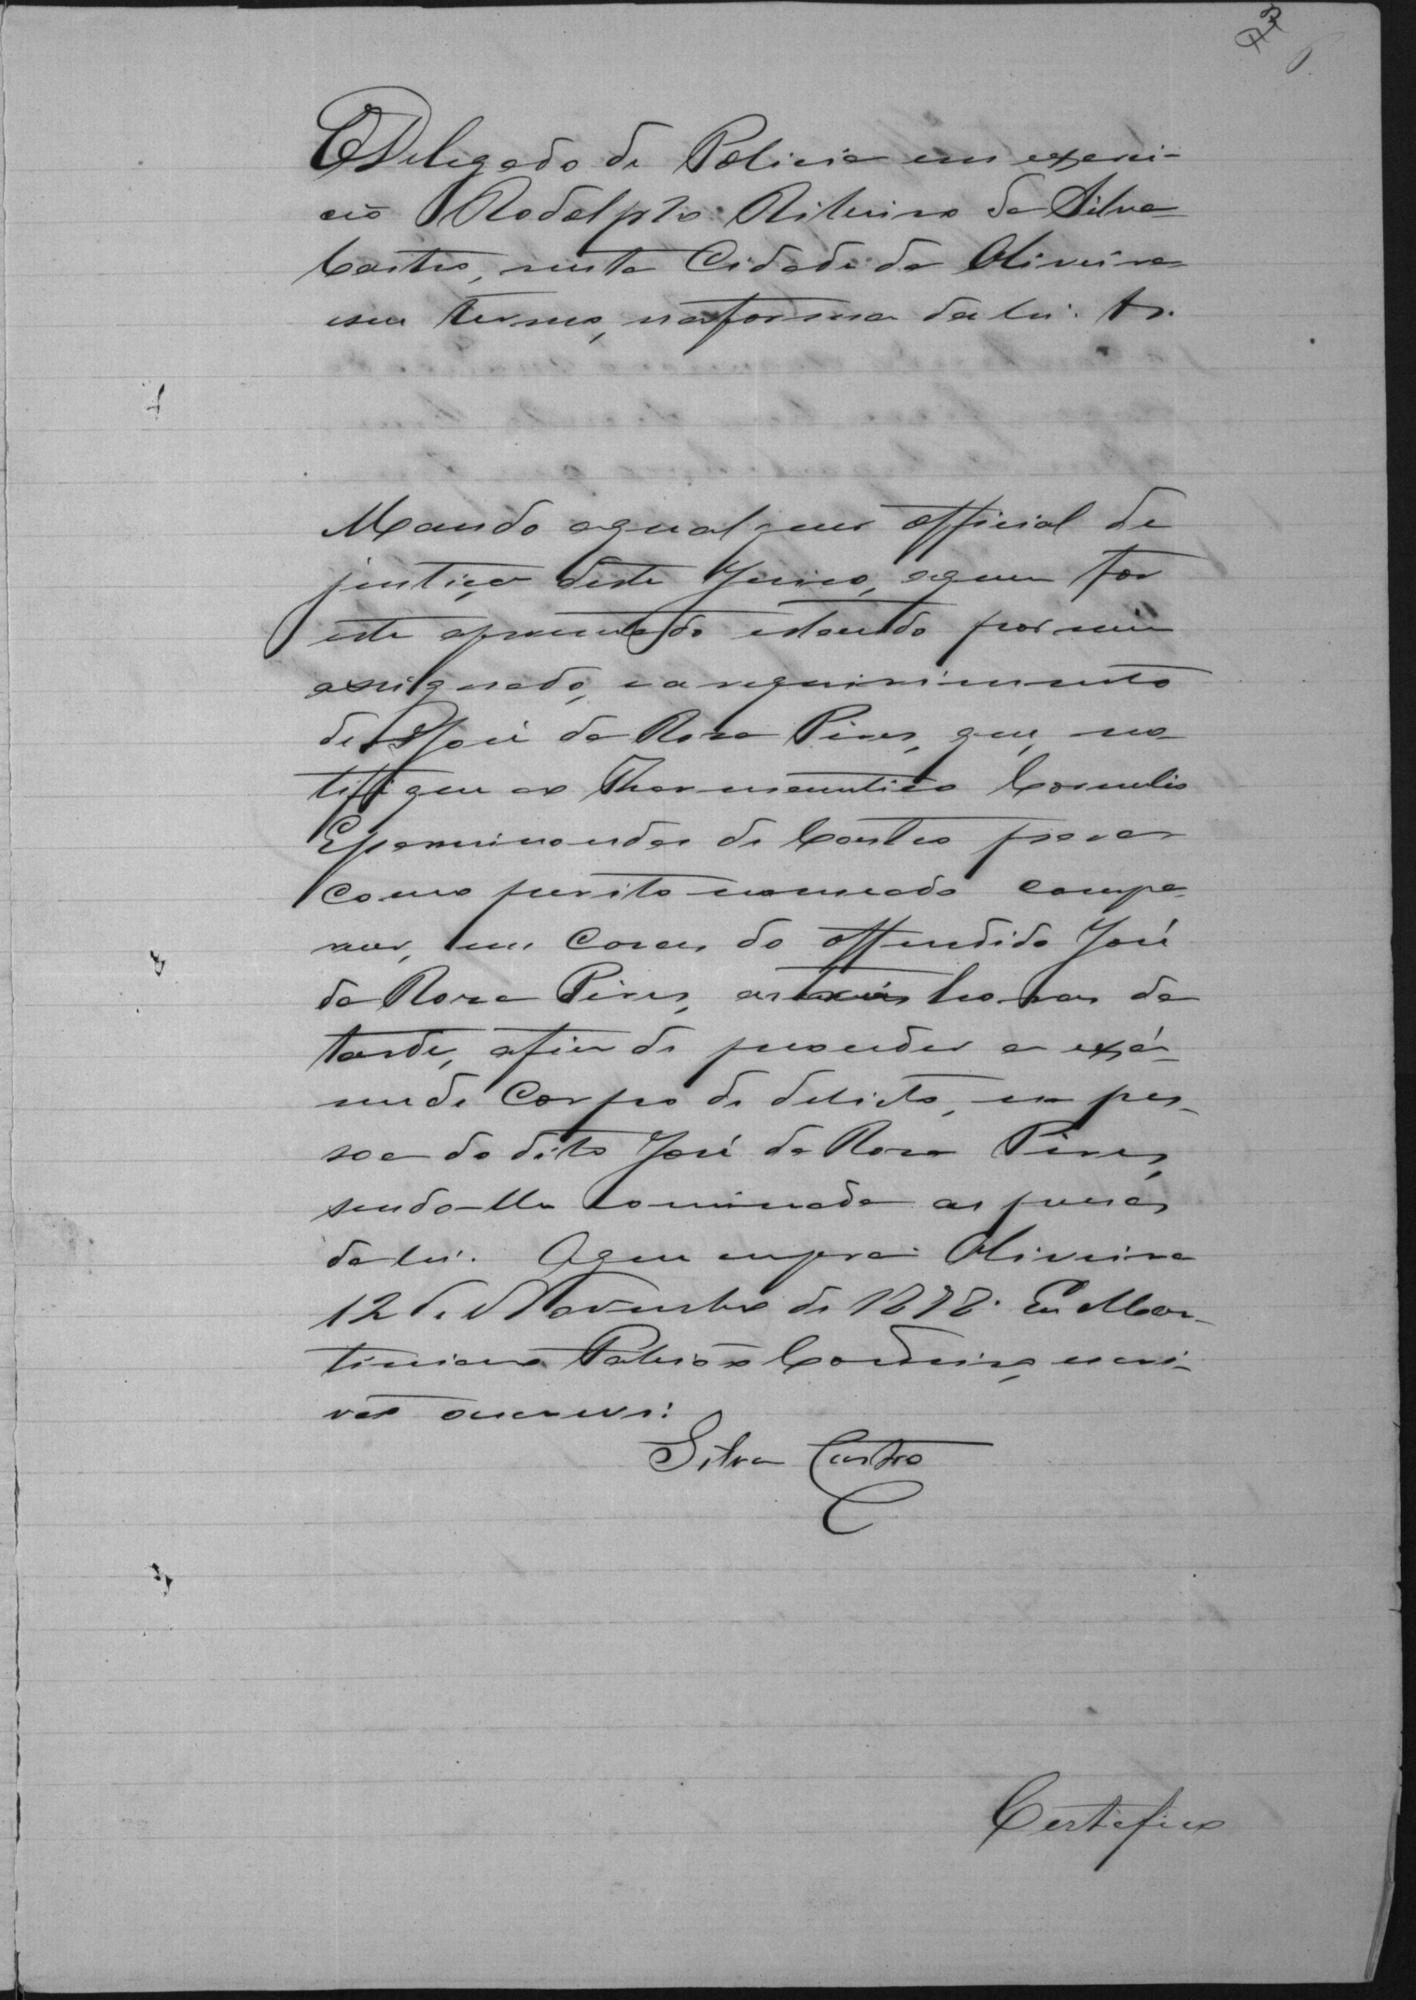 6
O Delegado de Policia em exerci-
cio Rodolpho Ribeiro da Silva
Castro, nesta Cidade da Oliveira
eseu termo, naforma da lei. &.
Mando aqualquer official de
justiça deste Juizo, aquem for
este apresentado estando por mim
assignado, e a requirimento
de José da Rosa Pires, que, no
tifique ao Pharmaceutico Cornelio
Epaminondas de Castro para
como perito nomeado compa-
recer, em Casa do offendido José
da Rosa Pires, as horas da
tarde, afim de proceder a exá-
me de Corpo de delicto, na pes-
soa do dito José da Rosa Pires,
sendo-lhe comminada as penas
da lei. Oque cumpra. Oliveira
12 de Novembro de 1898. Eu Mar-
tiniano Cordeiro, escri-
vão oescrevi.
Silva Castro
Certifico